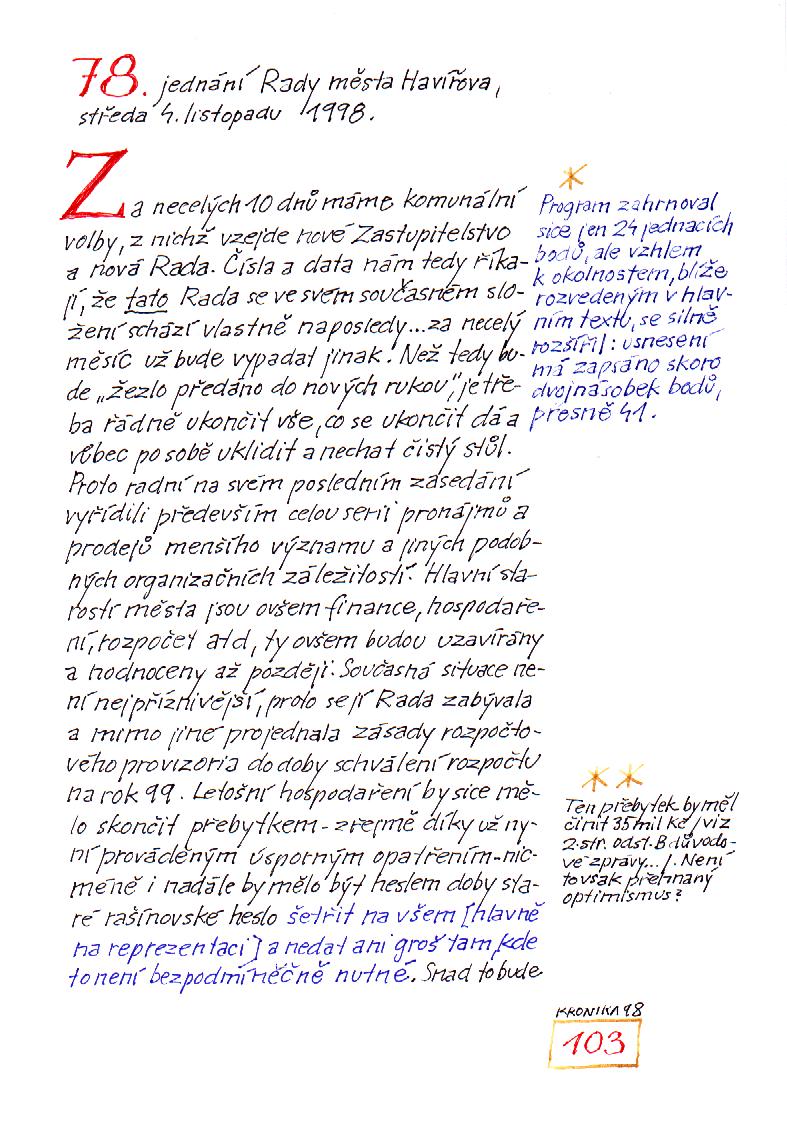 78. jednání Rady města Havířova,
středa 4. listopadu 1998.
Za necelých 10 dnů máme komunální
volby, z nichž vzejde nové Zastupitelstvo
a nová Rada. Čísla a data nám tedy říka-
jí, že tato Rada se ve svém současném slo-
žení schází vlastně naposledy...za necelý
měsíc už bude vypadat jinak. Než tedy bu-
de „žezlo předáno do nových rukou", je tře-
ba řádně ukončit vše, co se ukončit dá a
vůbec po sobě uklidit a nechat čistý stůl.
Proto radní na svém posledním zasedání
vyřídili především celou serii pronájmů a
prodejů menšího významu a jiných podob-
ných organizačních záležitostí. Hlavní sta-
rostí města jsou ovšem finance, hospodaře-
ní, rozpočet atd, ty ovšem budou uzavírány
a hodnoceny až později. Současná situace ne-
ní nejpříznivější, proto se jí Rada zabývala
a mimo jiné projednala zásady rozpočto-
vého provizoria do doby schválení rozpočtu
na rok 99. Letošní hospodaření by sice mě-
lo skončit přebytkem - zřejmě díky už ny-
ní prováděným úsporným opatřením - nic-
méně i nadále by mělo být heslem doby sta-
ré rašínovské heslo šetřit na všem [hlavně
na reprezentaci] a nedat ani groš tam, kde
to není bezpodmínečně nutné. Snad to bude
*
Program zahrnoval
sice jen 24 jednacích
bodů, ale vzhlem
k okolnostem, blíže
rozvedeným v hlav-
ním textu, se silně
rozšířil: usnesení
má zapsáno skoro
dvojnásobek bodů,
přesně 41.
**
Ten přebytek by měl
činit 35 mil Kč /viz
2.str. odst. B důvodo-
vé zprávy.../. Není
to však přehnaný
optimismus?
KRONIKA 98
103